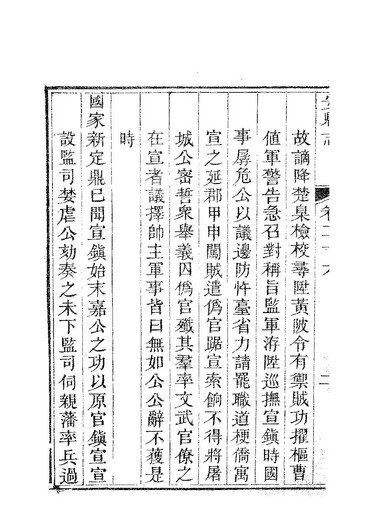 志
卷二十六
故謫降楚臬檢校尋陞黃陂令有禦賊功擢樞曹
値軍警告急召對稱旨監軍洊陞巡撫宣鎭時國
事孱危公以議邊防忤臺省力請罷職道梗僑寓
宣之延郡甲申闖賊遣僞官踞宣索餉不得將屠
城公密誓衆舉義囚僞官殲其羣率文武官僚之
在宣者議擇帥主軍事皆曰無如公公辭不獲是
時
國家新定鼎已聞宣鎭始末嘉公之功以原官鎭宣宣
設監司婪虐公劾奏之未下監司伺親藩率兵過